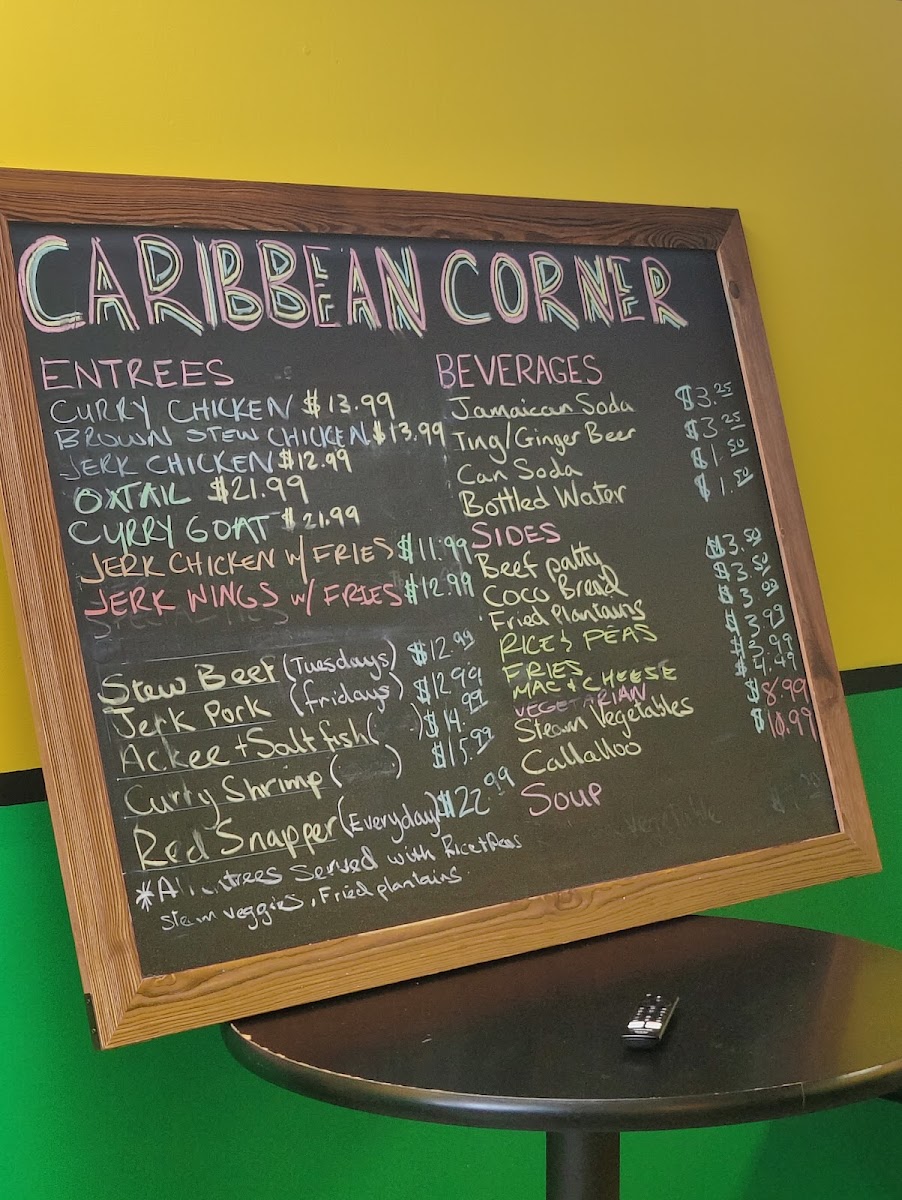 CARIBBEAN CORNER
ENTREES
CURRY CHICKEN $13.99
BROWN STEW CHICKEN $13.99
JERK CHICKEN $12.99
OXTAIL $21.99
CURRY GOAT $21.99
JERK CHICKEN W/ FRIES $11.99
JERK WINGS W/ FRIES $12.99
SPECIALTIES
Stew Beef (Tuesdays) $12.99
Jerk Pork (fridays) $12.99
Ackee + Saltfish ( ) $14.99
Curry Shrimp ( ) $15.99
Red Snapper (Everyday) $22.99
*All entrees Served with Rice + Peas
steam veggies, Fried plantains
BEVERAGES
Jamaican Soda $3.25
Ting/Ginger Beer $3.25
Can Soda $1.50
Bottled Water $1.50
SIDES
Beef patty $3.50
Coco Bread $3.50
Fried Plantains $3.99
RICE & PEAS $3.99
FRIES $3.99
MAC & CHEESE $4.49
VEGETARIAN
Steam Vegetables $8.99
Callalloo $10.99
Soup
vegetable